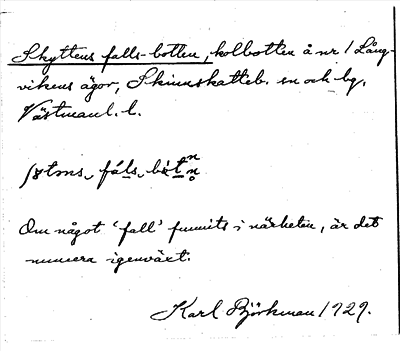 Skyttens falls-botten, kolbotten å nr 1 Lång-
vikens ägor, Skinnskatteb. sn och bg,
Västmanl. l.
fáls
Om något 'fall' funnits i närheten, är det
numera igenväxt.
Karl Björkman 1929.